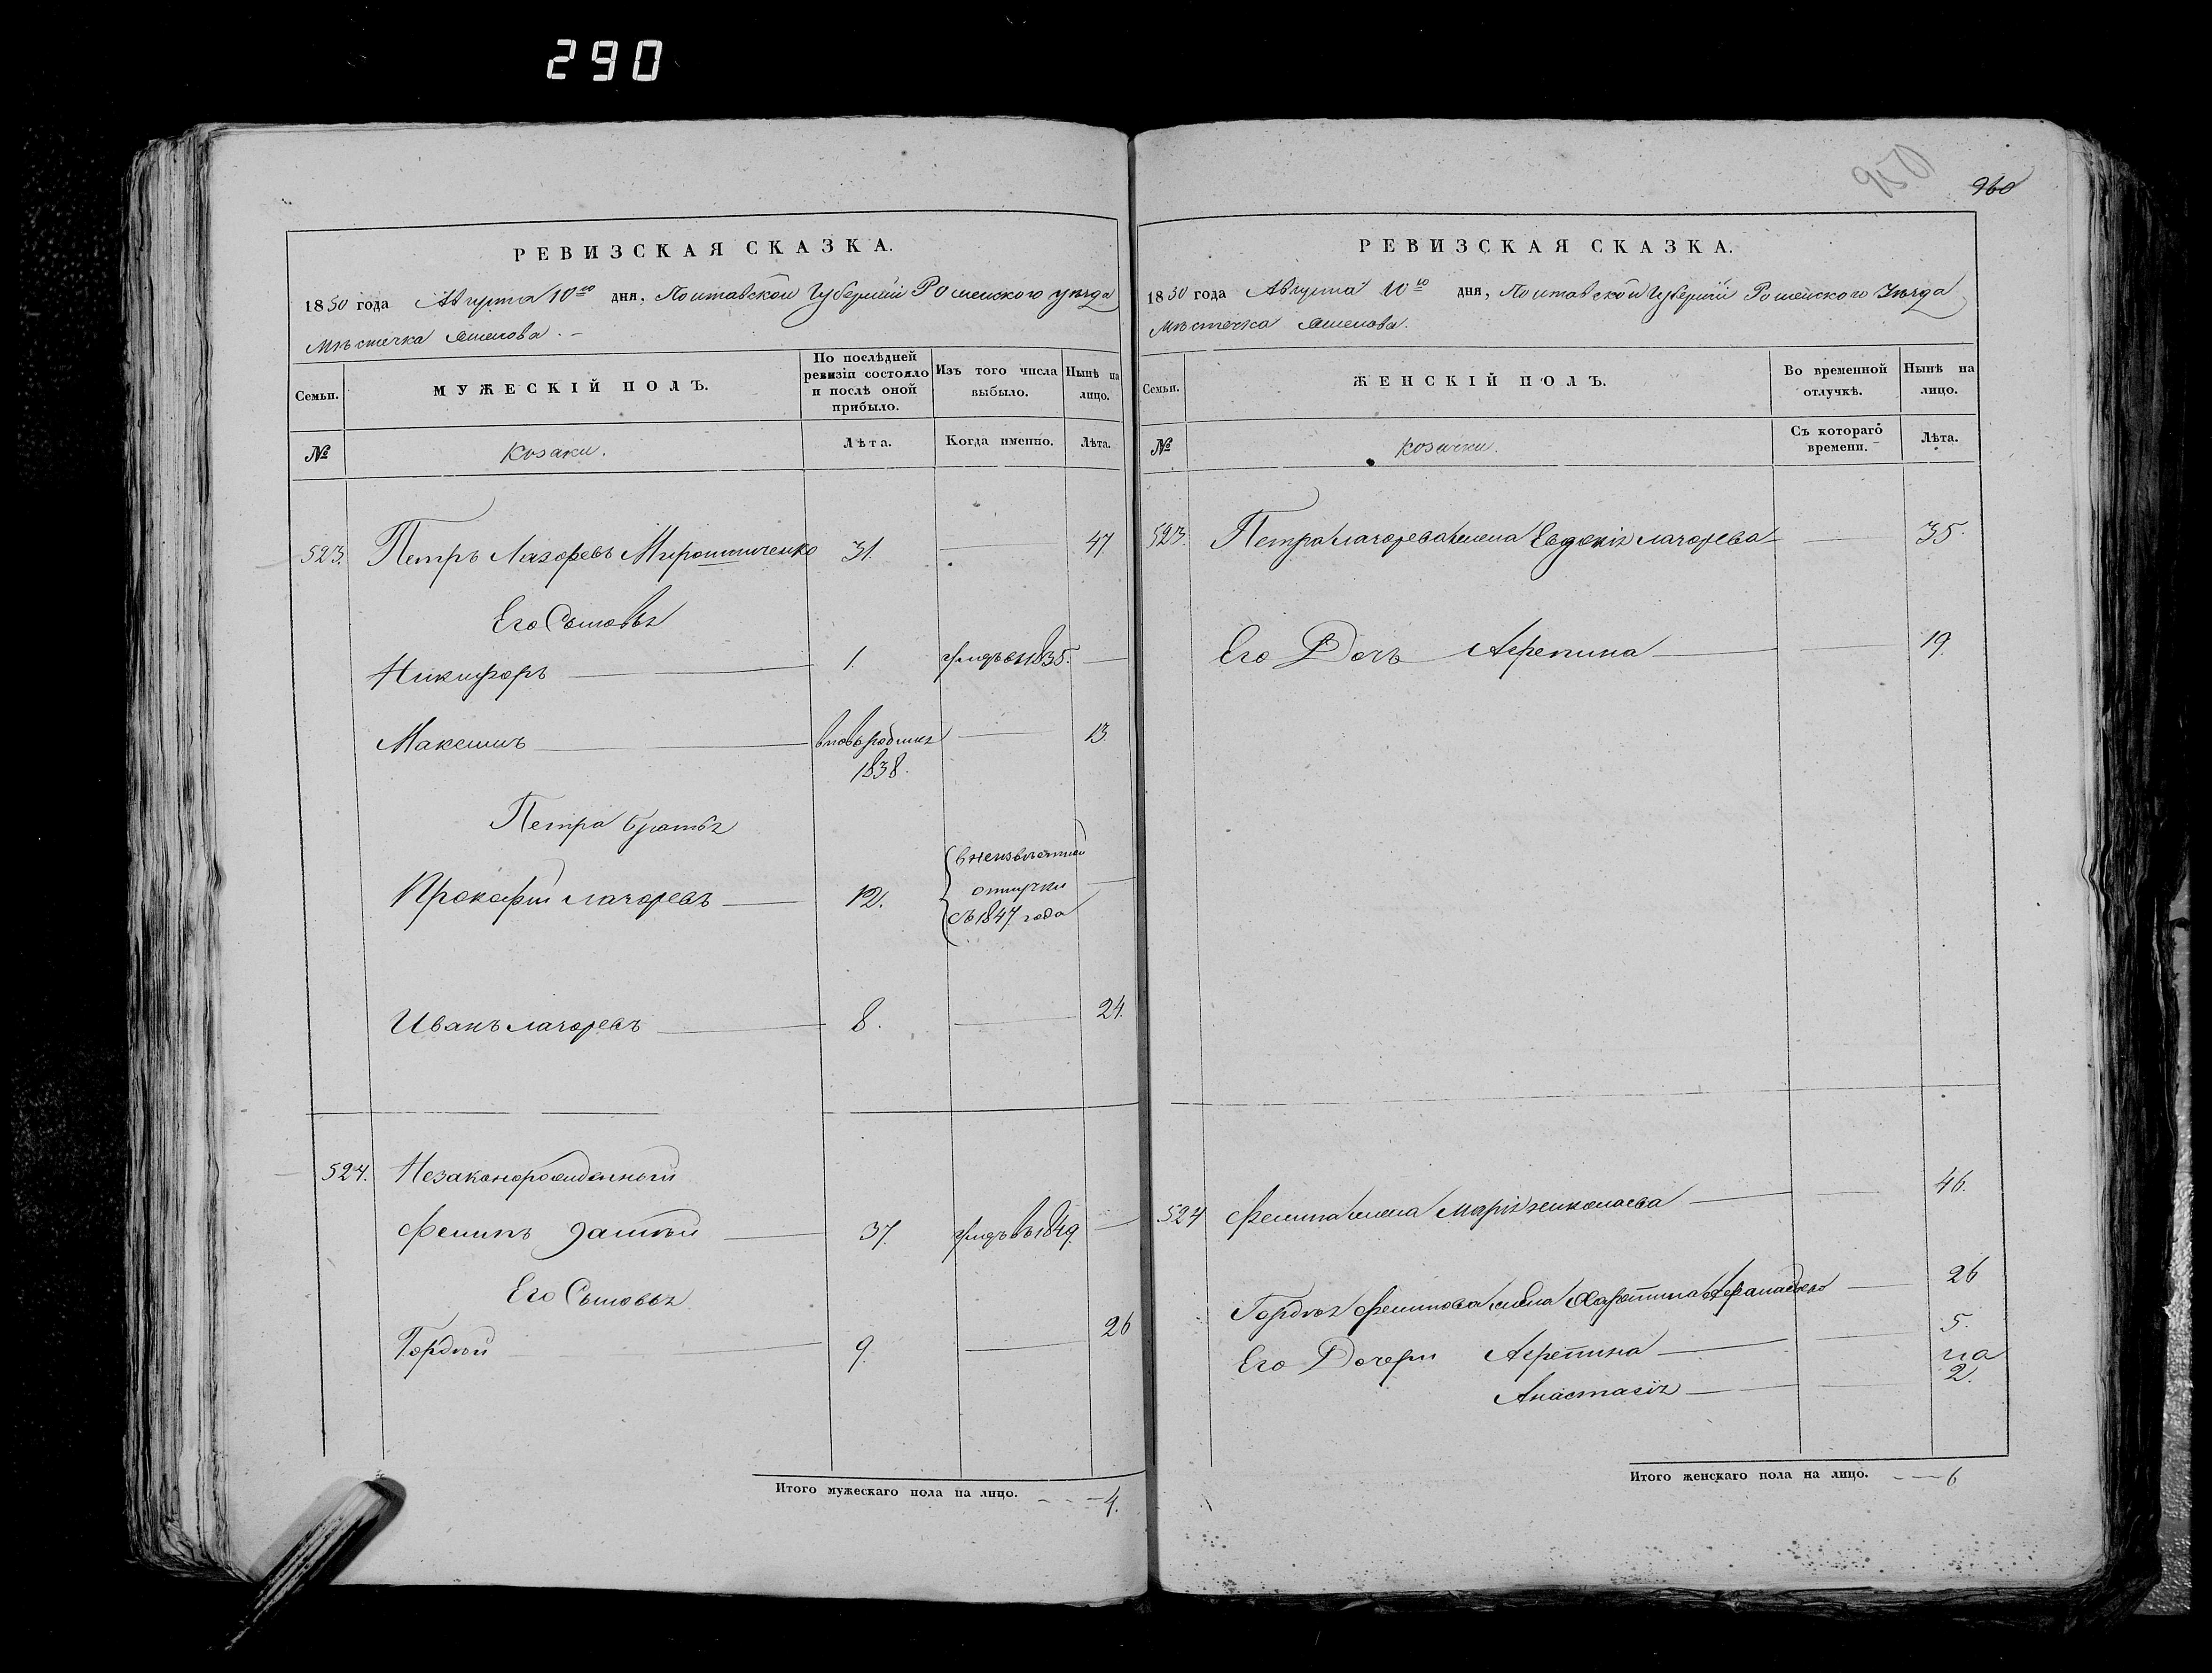 290
950
960
РЕВИЗСКАЯ СКАЗКА.
1850 года Августа 10го дня, Полтавской Губерніи Роменского уѣзда
Мѣстечка Смелова.
Семьи.
МУЖЕСКІЙ ПОЛЪ.
По послѣдней ревизіи состояло и послѣ оной прибыло.
Изъ того числа выбыло.
Нынѣ на лицо.
№
Козаки.
Лѣта.
Когда именно.
Лѣта.
523. Петръ Лазоревъ Мирошниченко 31. 47
Его Сыновья
Никифоръ 1. умеръ в 1835.
Максимъ вновь рожденъ 13.
1838.
Петра братья
Прокофий Лазоревъ 12. в неизвестной
отлучки
съ 1847 года
Иванъ Лазоревъ 8. 24.
524. Незаконорожденный
Филипъ 37. умеръ въ 1849.
Его Сыновья
Гордѣй 9. 26
Итого мужескаго пола на лицо. 4.
РЕВИЗСКАЯ СКАЗКА.
1850 года Августа 10го дня, Полтавской Губерніи Роменского Уѣзда
Мѣстечка Смелова.
Семьи.
ЖЕНСКІЙ ПОЛЪ.
Во временной отлучкѣ.
Нынѣ на лицо.
№
Козачки.
Съ котораго времени.
Лѣта.
523. Петра Лазорева жена Евдокія Лазорева 35.
Его Дочь Агрепина 19.
524 Филипа жена Марія Николаева 46.
Гордѣя Филипова жена Афанасьева 26
Его Дочери Агрепина 5.
на
Анастасія 2.
Итого женскаго пола на лицо. 6